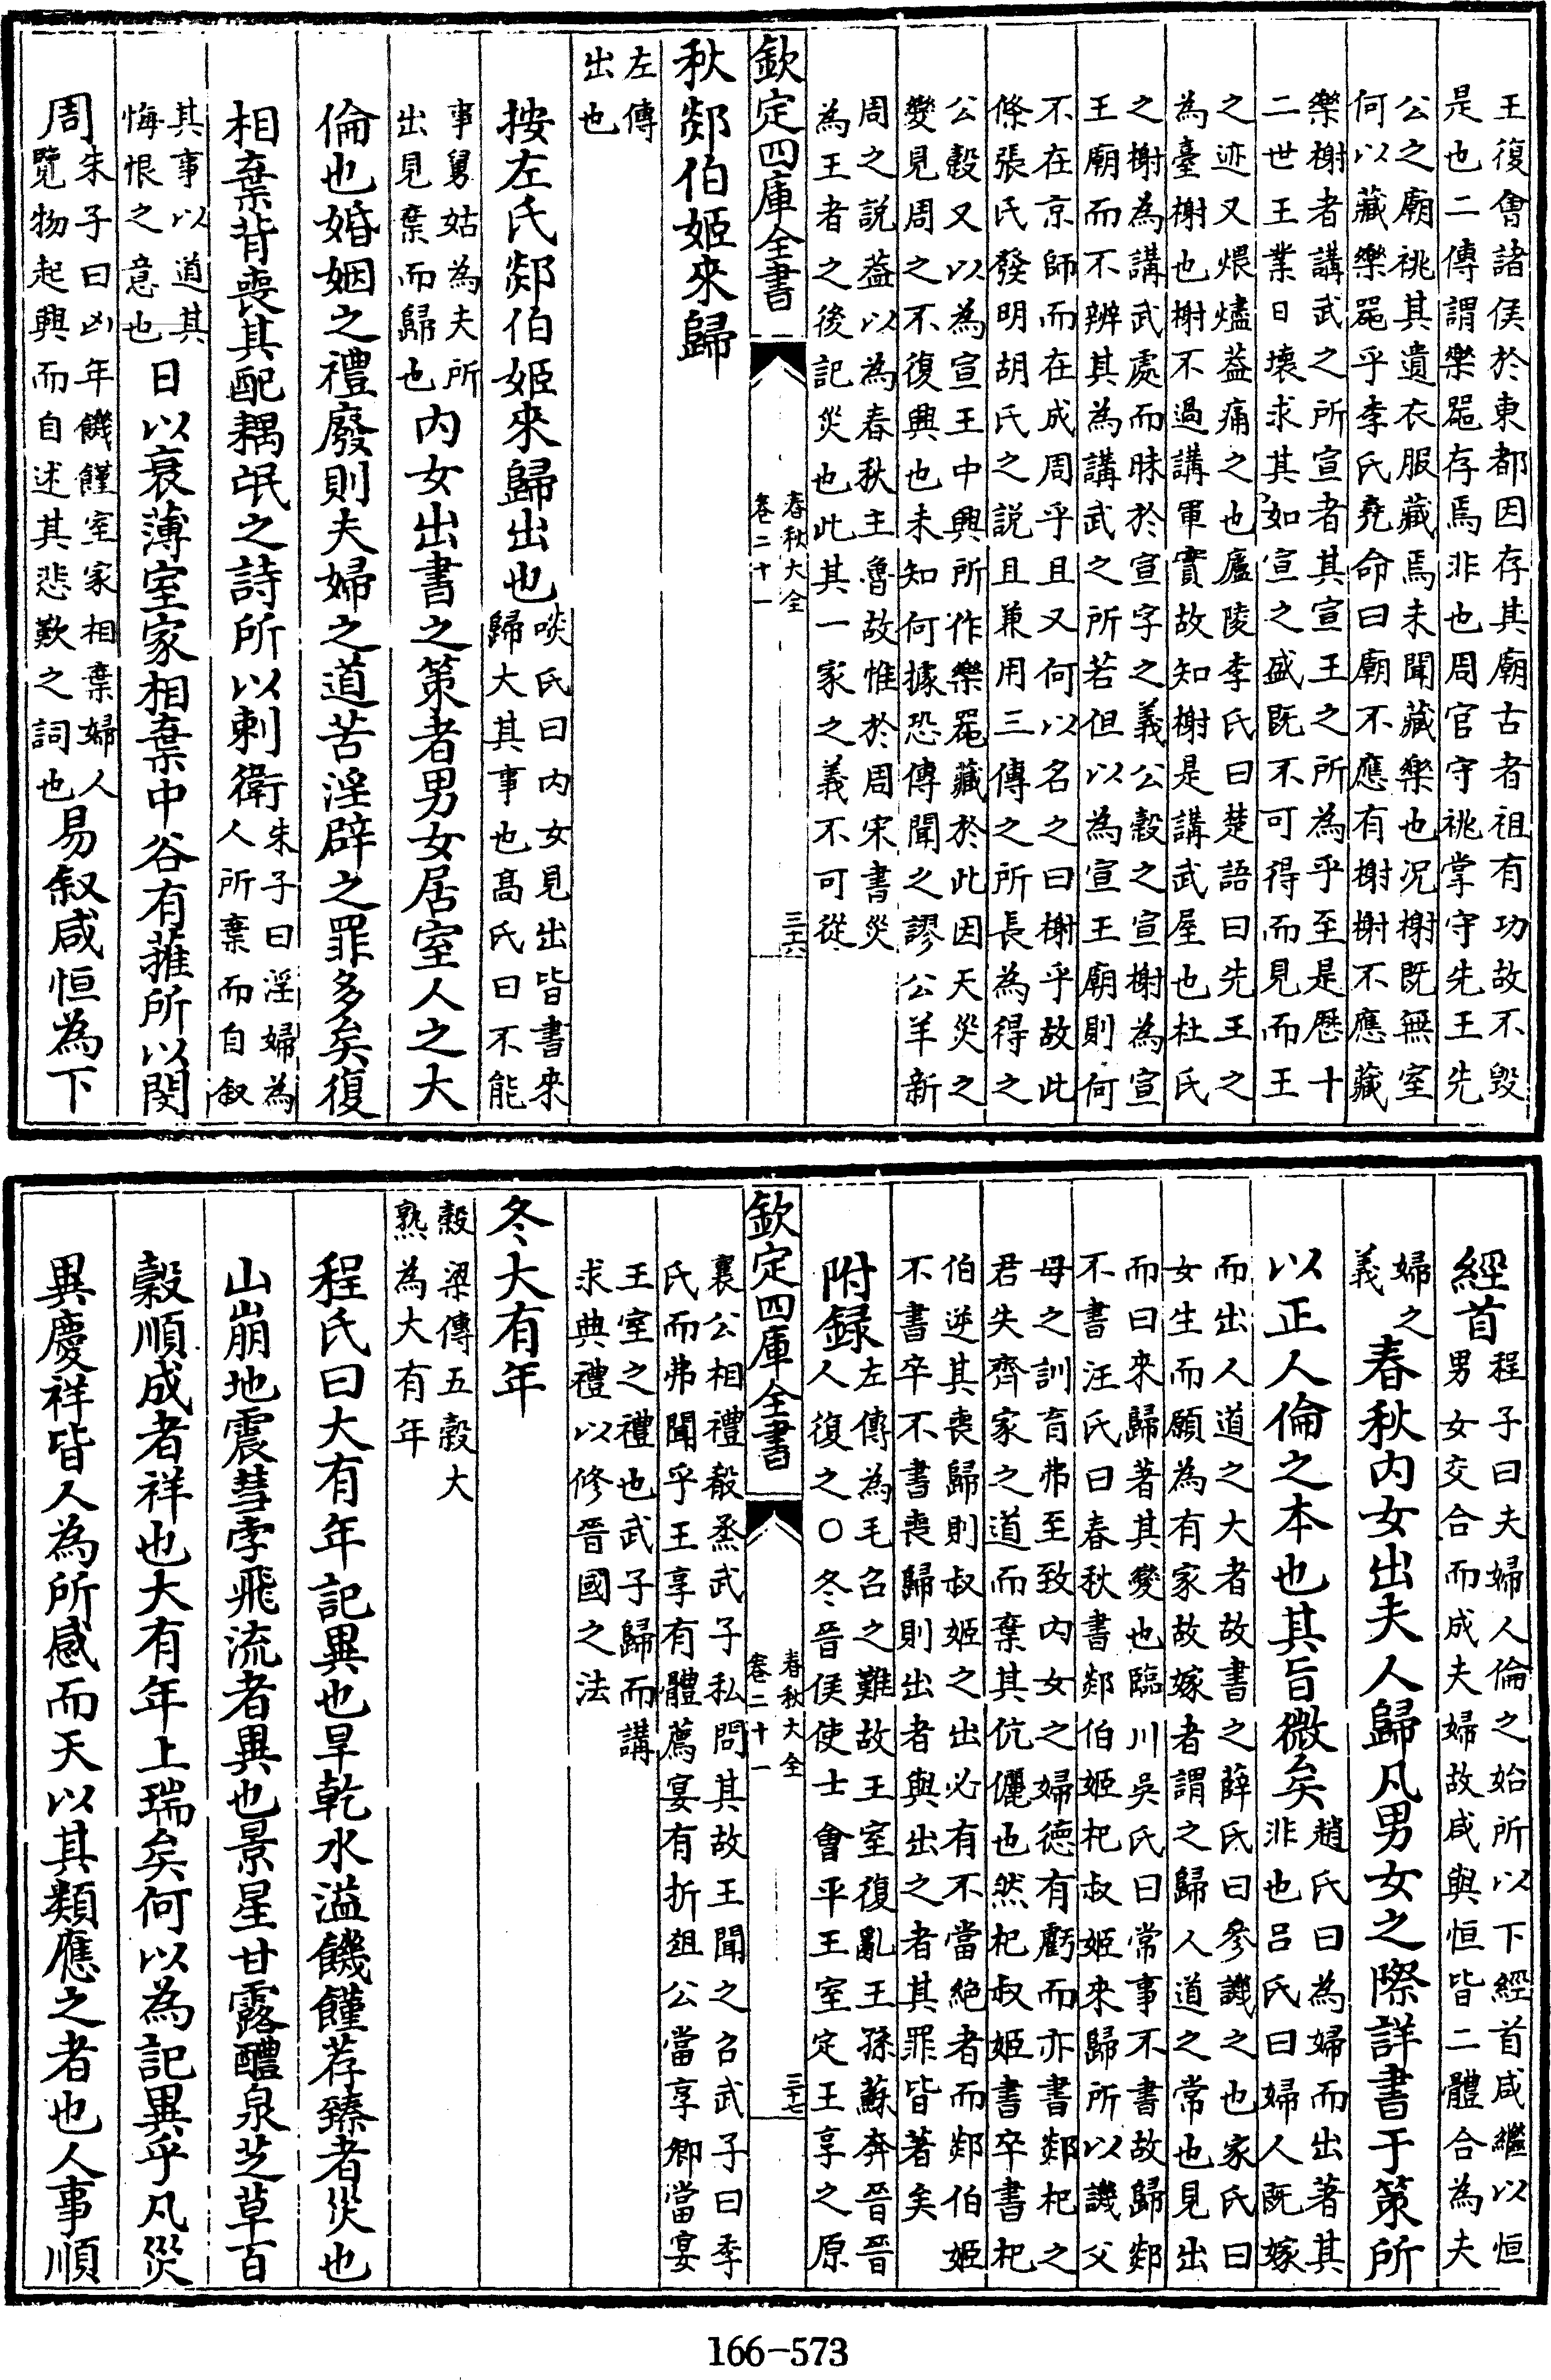 王復會諸侯於東都因存其廟古者祖有功故不毁
是也二傳謂樂噐存焉非也周官守祧掌守先王先
公之廟祧其遺衣服藏焉未聞藏樂也况榭既無室
何以藏樂噐乎李氏堯命曰廟不應有榭榭不應藏
樂榭者講武之所宣者其宣王之所為乎至是歴十
二世王業日壊求其如宣之盛既不可得而見而王
之迹又煨燼葢痛之也廬陵李氏曰楚語曰先王之
為臺榭也榭不過講軍實故知榭是講武屋也杜氏
之榭為講武處而昧於宣字之義公糓之宣榭為宣
王廟而不辨其為講武之所若但以為宣王廟則何
不在京師而在成周乎且又何以名之曰榭乎故此
條張氏發明胡氏之説且兼用三傳之所長為得之
公糓又以為宣王中興所作樂噐藏於此因天災之
變見周之不復興也未知何據恐傳聞之謬公羊新
周之説葢以為春秋主魯故惟於周宋書災
為王者之後記災也此其一家之義不可從
欽定四庫全書
春秋大全
卷二十一
三十六
秋郯伯姬來歸
左傳
出也
按左氏郯伯姬來歸出也
啖氏曰内女見出皆書來
歸大其事也髙氏曰不能
事舅姑為夫所
出見棄而歸也
内女出書之策者男女居室人之大
倫也婚姻之禮廢則夫婦之道苦淫辟之罪多矣復
相棄背喪其配耦氓之詩所以刺衛
朱子曰淫婦為
人所棄而自叙
其事以道其
悔恨之意也
日以衰薄室家相棄中谷有蓷所以閔
周
朱子曰凶年饑饉室家相棄婦人
覽物起興而自述其悲歎之詞也
易叙咸恒為下
經首
程子曰夫婦人倫之始所以下經首咸繼以恒
男女交合而成夫婦故咸與恒皆二體合為夫
婦之
義
春秋内女出夫人歸凡男女之際詳書于策所
以正人倫之本也其旨微矣
趙氏曰為婦而出著其
非也吕氏曰婦人既嫁
而出人道之大者故書之薛氏曰參譏之也家氏曰
女生而願為有家故嫁者謂之歸人道之常也見出
而曰來歸著其變也臨川吳氏曰常事不書故歸郯
不書汪氏曰春秋書郯伯姬杞叔姬來歸所以譏父
母之訓育弗至致内女之婦德有虧而亦書郯杞之
君失齊家之道而棄其伉儷也然杞叔姬書卒書杞
伯逆其喪歸則叔姬之出必有不當絶者而郯伯姬
不書卒不書喪歸則出者與出之者其罪皆著矣
附録
左傳為毛召之難故王室復亂王孫蘇奔晉晉
人復之○冬晉侯使士會平王室定王享之原
欽定四庫全書
春秋大全
卷二十一
三十七
襄公相禮殽烝武子私問其故王聞之召武子曰季
氏而弗聞乎王享有體薦宴有折俎公當享卿當宴
王室之禮也武子歸而講
求典禮以修晉國之法
冬大有年
糓梁傳五糓大
熟為大有年
程氏曰大有年記異也旱乾水溢饑饉荐臻者災也
山崩地震彗孛飛流者異也景星甘露醴泉芝草百
糓順成者祥也大有年上瑞矣何以為記異乎凡災
異慶祥皆人為所感而天以其類應之者也人事順
166-573